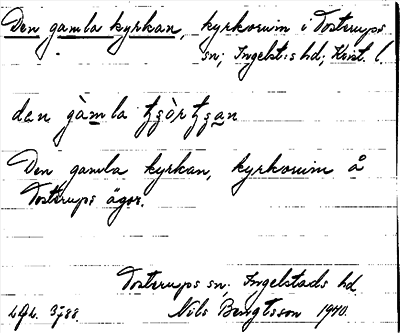 Den gamla kyrkan, kyrkoruin i Tosterups
sn; Ingelst:s hd; Krist. l.
dɛn gàmla ꞎɡòrꞎɡan
Den gamla kyrkan, kyrkoruin å
Tosterups ägor.
Tosterups sn; Ingelstads hd.
Nils Bengtsson 1940.